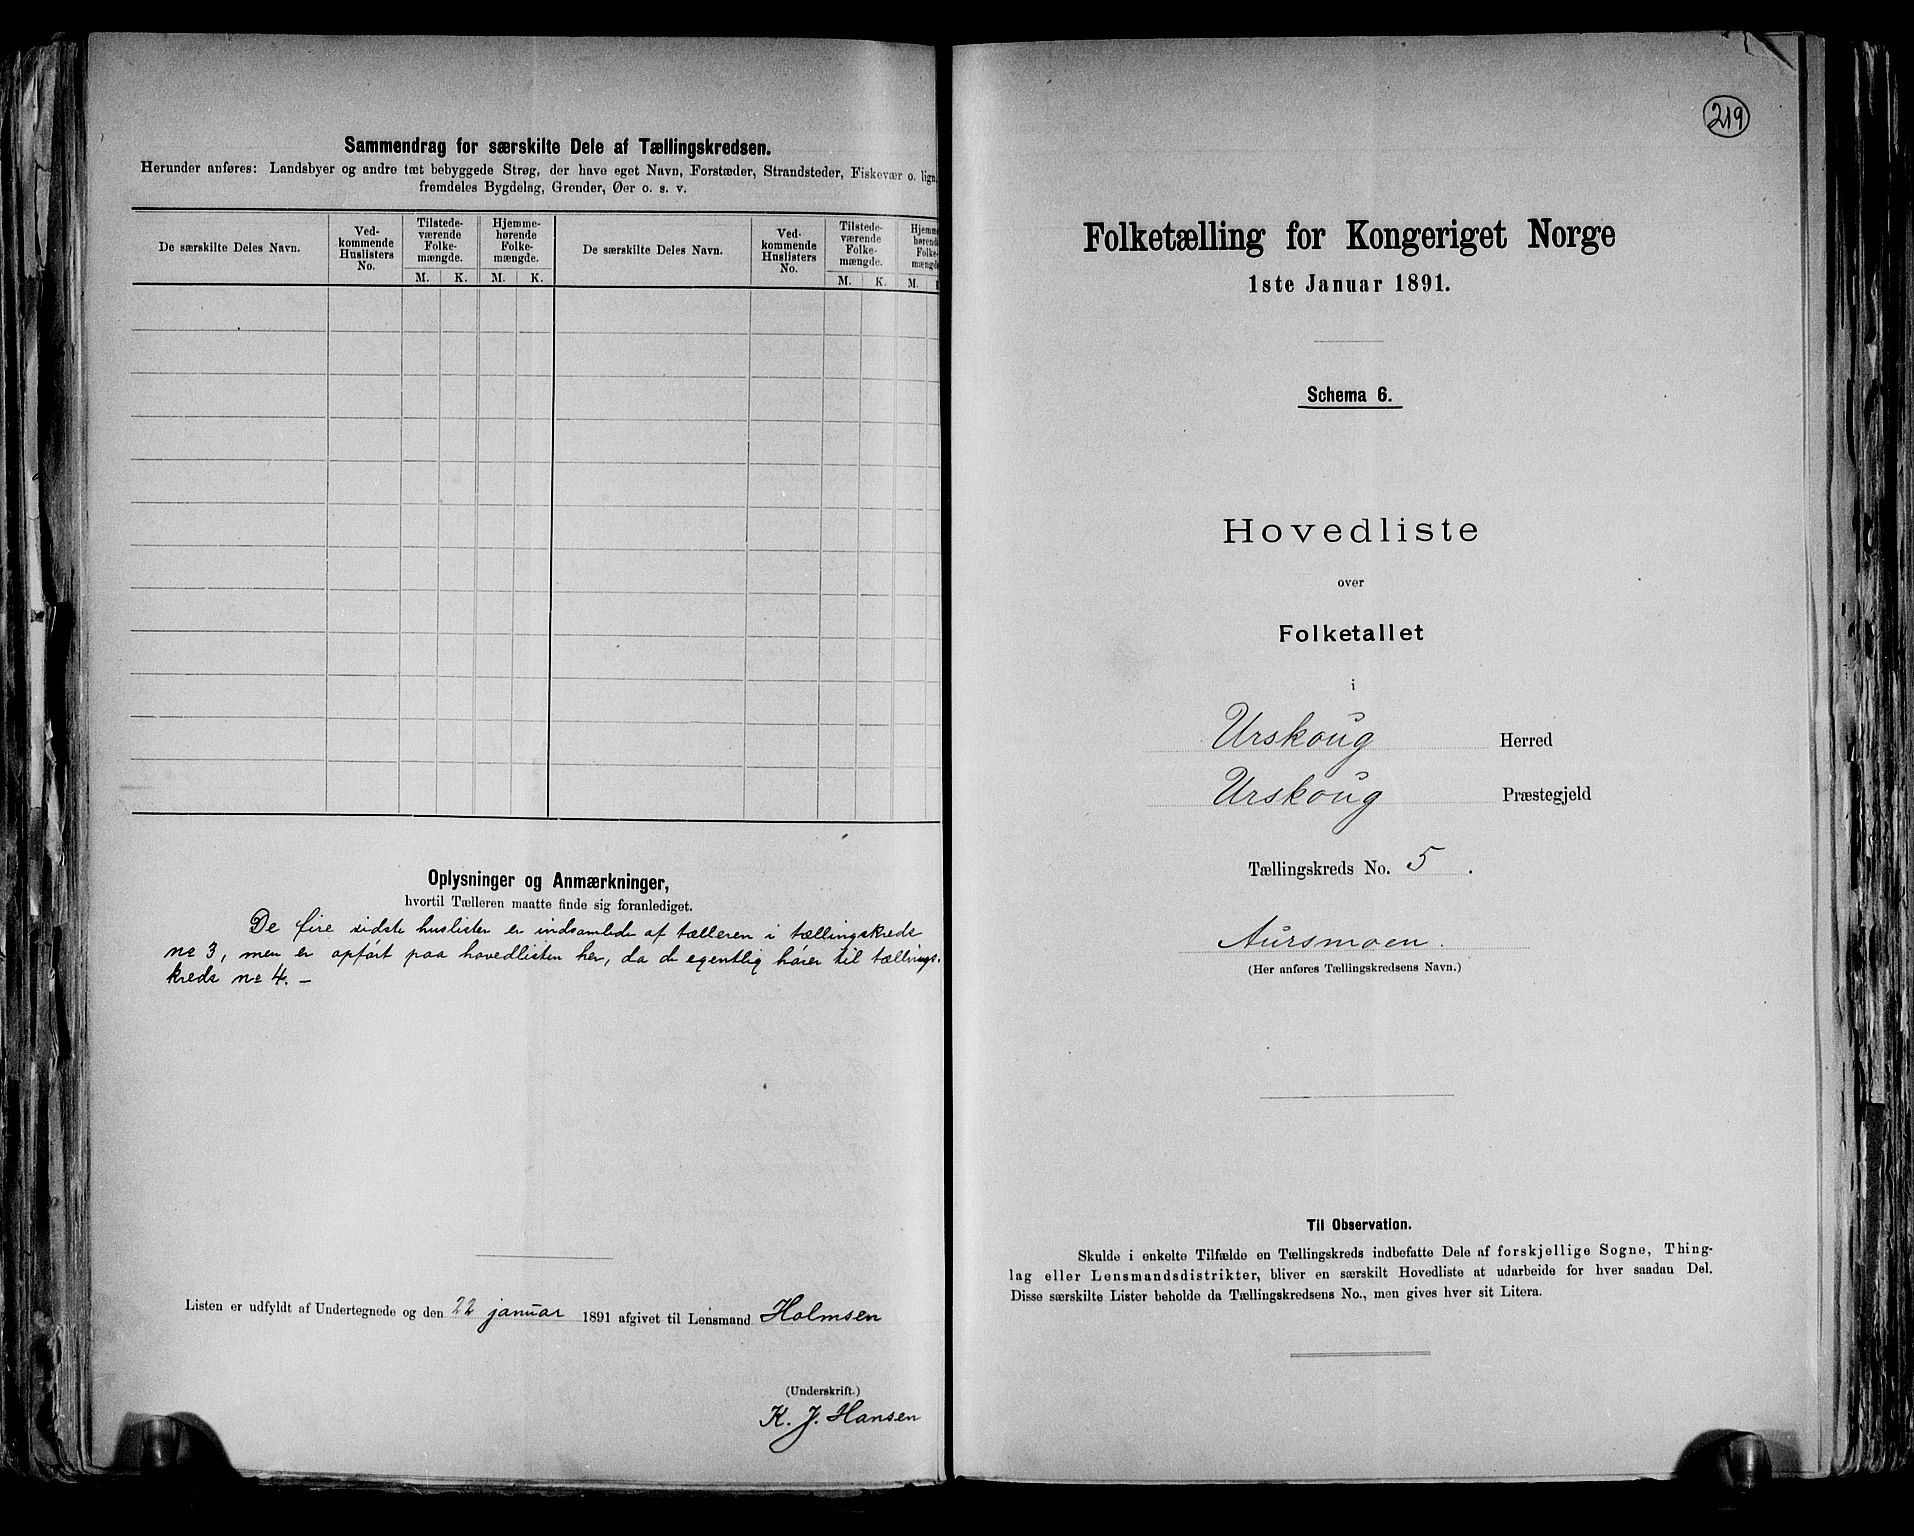 Sammendrag for særskilte Dele af Tællingskredsen.
Herunder anføres: Landsbyer og andre tæt bebyggede Strøg, der have eget Navn, Forstæder, Strandsteder, Fiskevær o. lign.
fremdeles Bygdelag, Grender, Øer o. s. v.
De særskilte Deles Navn.
Ved-
kommende
Huslisters
No.
Tilstede-
værende
Folke-
mængde.
Hjemme-
hørende
Folke-
mængde.
De særskilte Deles Navn.
Ved-
kommende
Huslisters
No.
Tilstede-
værende
Folke-
mængde.
Hjemme
hørende
Folke
mængde
M. K. M. K. M. K. M.
Oplysninger og Anmærkninger,
hvortil Tælleren maatte finde sig foranlediget.
De fire sidste huslister er indsamlede af tælleren i tællingskreds
no 3, men er opført paa hovedlisten her, da de egentlig hører til tællings-
kreds no 4. –
Listen er udfyldt af Undertegnede og den 22 januar 1891 afgivet til Lensmand Holmsen
(Underskrift.)
K. J. Hansen
219
Folketælling for Kongeriget Norge
1ste Januar 1891.
Schema 6.
Hovedliste
over
Folketallet
i
Urskoug Herred
Urskoug Præstegjeld
Tællingskreds No. 5.
Aursmoen.
(Her anføres Tællingskredsens Navn.)
Til Observation.
Skulde i enkelte Tilfælde en Tællingskreds indbefatte Dele af forskjellige Sogne, Thing-
lag eller Lensmandsdistrikter, bliver en særskilt Hovedliste at udarbeide for hver saadan Del.
Disse særskilte Lister beholde da Tællingskredsens No., men gives hver sit Litera.